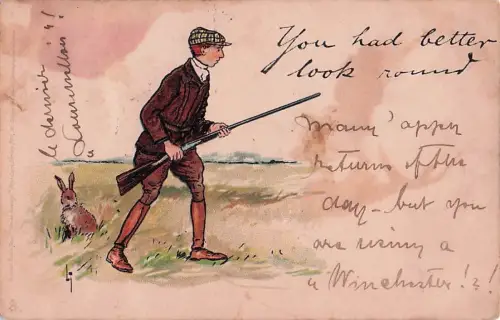 You had better
look round
Many 'appy
returns of the
day - but you
are using a
"Winchester"!?!
le dernier